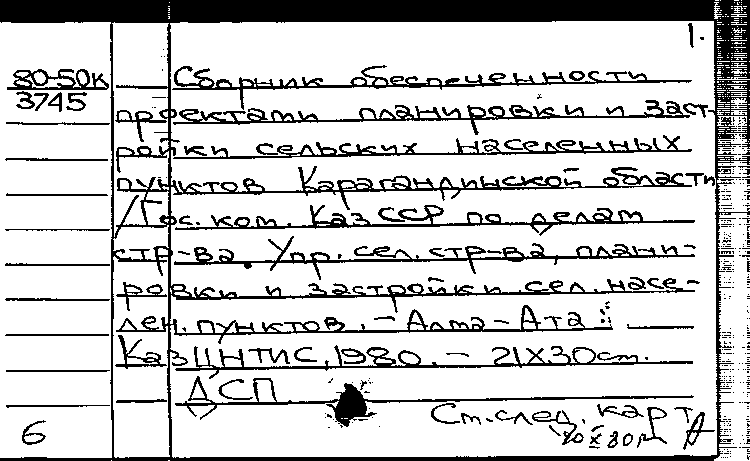 1.
80-50к
3745
Сборник обеспеченности
проектами планировки и заст-
ройки сельских населенных
пунктов Карагандинской области
/Гос. ком. КазССР по делам
стр-ва. Упр. сел. стр-ва, плани-
ровки и застройки сел. насе-
лен. пунктов. – Алма-Ата :
КазЦНТИС, 1980. – 21X30см.
ДСП
Ст. след. карт
6